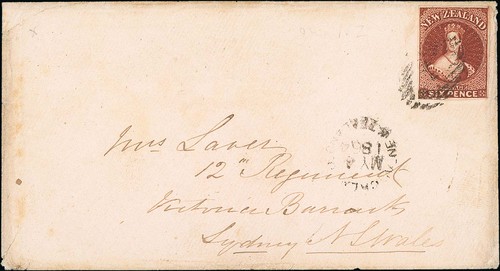 NEW ZEALAND
POSTAGE
SIX PENCE
Mrs Laver
12th Regiment
Victoria Barracks
Sydney N S Wales
MY 4